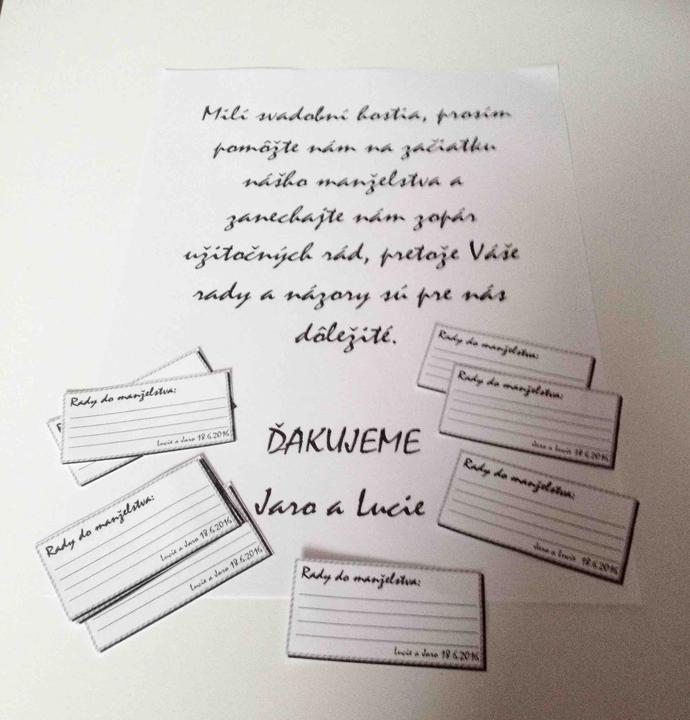 Milí svadobní hostia, prosím
pomôžte nám na začiatku
nášho manželstva a
zanechajte nám zopár
užitočných rád, pretože Váše
rady a názory sú pre nás
dôležité.
ĎAKUJEME
Jaro a Lucie
Rady do manželstva:
Rady do manželstva:
Jaro a Lucie 18.6.2016
Rady do manželstva:
Jaro a Lucie 18.6.2016
Rady do manželstva:
Lucie a Jaro 18.6.2016
Rady do manželstva:
Lucie a Jaro 18.6.2016
Lucie a Jaro 18.6.2016
Rady do manželstva:
Lucie a Jaro 18.6.2016